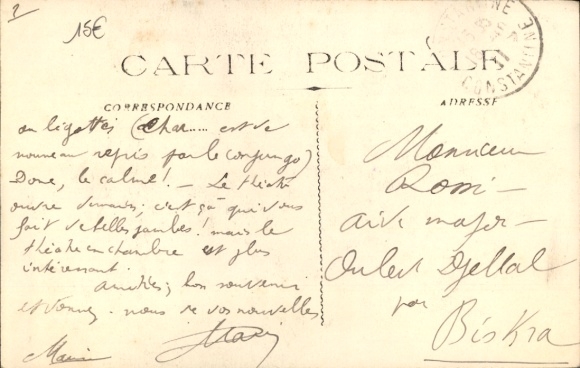 2
15€
CARTE POSTALE
CONSTANTINE
CONSTANTINE
CORRESPONDANCE
ADRESSE
ou ligottés (Char..... est de
nouveau repris par le conjungo)
Donc, le calme! — Le théâtre
ouvre demain; c'est ça qui vous
fait de belles jambes! mais le
théâtre en chambre est plus
intéressant.
Amitiés; bon souvenir
et donnez-nous de vos nouvelles
Monsieur
Rossi —
aide major —
Ouled Djellal
par
Biskra